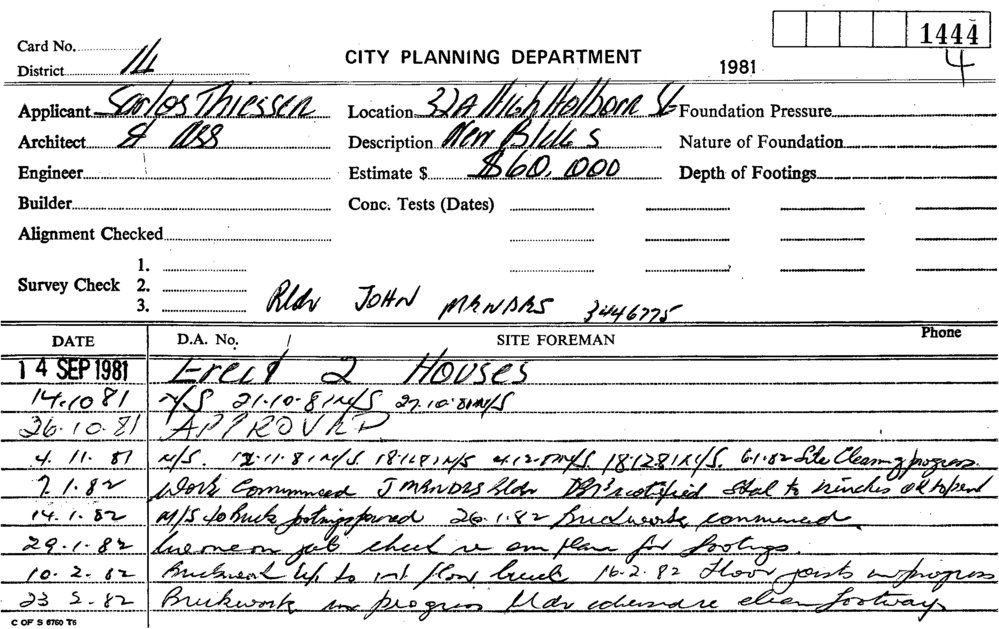 1444
4
Card No.
CITY PLANNING DEPARTMENT
1981
District 14
Applicant Carlos Thiessen Location 32A High Holborn St Foundation Pressure
Architect & Ass Description New Bldgs Nature of Foundation
Engineer Estimate $ $60,000 Depth of Footings
Builder Conc. Tests (Dates)
Alignment Checked
1.
Survey Check 2.
3. Bldr JOHN MANDAS 3446775
DATE D.A. No. SITE FOREMAN Phone
14 SEP 1981 Erect 2 Houses
14.10 81 N/S 21.10.81 N/S 27.10.81 N/S
26.10.81 APPROVAL
4.11.81 N/S. 12.11.81 N/S. 18.11.81 N/S 4.12.81 N/S. 18.12.81 N/S. 6.1.82 Site Clearing progress.
7.1.82 Work Commenced J MANDAS Bldr notified to
14.1.82 N/S footings poured 26.1.82 Brickwork commenced.
29.1.82 on job check re plans for footings.
10.2.82 Brickwork up to 1st floor level 16.2.82 Floor joists in progress
23 2.82 Brickwork in progress Bldr clean footway
C OF S 6760 T6